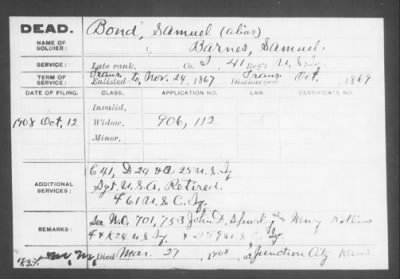 DEAD.
Bond, Samuel (alias)
NAME OF SOLDIER:
Barnes, Samuel.
SERVICE:
Late rank, Co. I, 41 Reg't U.S. Inf
TERM OF SERVICE:
Trans to
Enlisted Nov. 24, 1867 Discharged Trans Oct. 1869
DATE OF FILING. CLASS. APPLICATION NO. LAW. CERTIFICATE NO.
Invalid,
1908 Oct, 12 Widow, 906,112
Minor,
ADDITIONAL SERVICES:
C 41, D 24 & 25 U.S. Inf
Sgt. U.S.A. Retired
F 61 U.S.C. Inf
REMARKS:
See No. 701,753 John D.
F & K 24 U.S. Inf & U.S.C. Inf
Died Mar. 27, 1908, at Junction City Kans